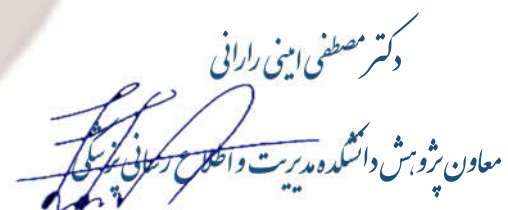 دکتر مصطفی امینی رارانی
معاون پژوهش دانشکده مدیریت و اطلاع رسانی پزشکی